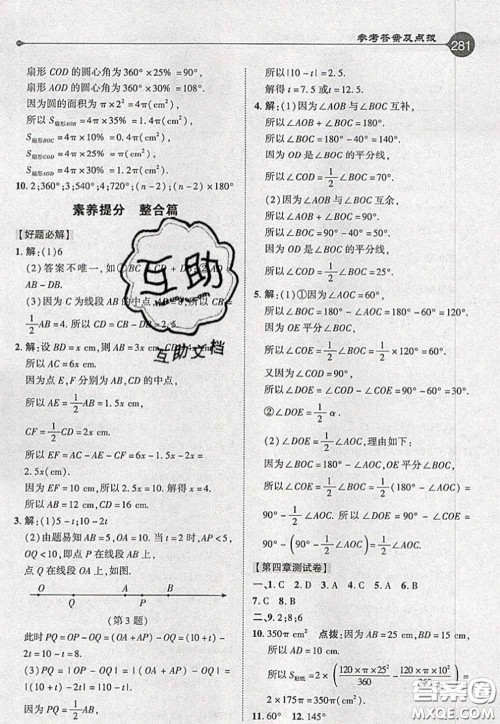 参考答案及点拨
281
扇形 COD 的圆心角为 360°×25% =90°,
扇形 AOD 的圆心角为 360°×30% =108°.
因为圆的面积为 π×2² =4π(cm²),
所以 S扇形AOB =4π×35% =1.4π(cm²),
S扇形BOC =4π×10% =0.4π(cm²),
S扇形COD =4π×25% =π(cm²),
S扇形AOD =4π×30% =1.2π(cm²).
10. 2;360°;3;540°;4;720°;(n-2);(n-2)×180°
素养提分 整合篇
【好题必解】
1. 解:(1)6
(2)答案不唯一,如① BC = CD + DB
AB - DB.
(3)因为 C 为线段 AB 的中点
1/2 AB =4. 所以 CD = CB - DB =2.5.
2. 解:设 BD = x cm,则 AB =3x cm,CD =4x cm,
所以 AC =6x cm.
因为点 E,F 分别为 AB,CD 的中点,
所以 AE = 1/2 AB =1.5x cm,
CF = 1/2 CD =2x cm.
所以 EF = AC - AE - CF =6x -1.5x -2x =
2.5x(cm).
因为 EF =10 cm,所以 2.5x =10,解得 x =4.
所以 AB =12 cm,CD =16 cm.
3. 解:(1)5 - t;10 -2t
(2)由题易知 AB =5. 当 t =2 时,AP <5,
OQ <10,即点 P 在线段 AB 上,
点 Q 在线段 OA 上,如图所示.
O A P Q B
(第 3 题)
此时 PQ = OP - OQ =(OA + AP) - OQ =(10 + t) -
2t =10 - t =8.
(3) PQ =|OP - OQ| =|(OA + AP) - OQ| =
|(10 + t) -2t| =|10 - t|,
因为 PQ = 1/2 AB,
所以|10 - t| =2.5.
解得 t =7.5 或 t =12.5.
4. 解:(1)因为∠AOB 与∠BOC 互补,
所以∠AOB + ∠BOC =180°.
所以∠BOC =180° -140° =40°.
因为 OD 是∠BOC 的平分线,
所以∠COD = 1/2 ∠BOC =20°.
(2)因为∠AOB 与∠BOC 互余,
所以∠AOB + ∠BOC =90°.
因为 OD 为∠BOC 的平分线,
所以∠COD = 1/2 ∠BOC =
5. 解:(1)①因为∠AOC =60°,
所以∠BOC =180° - ∠AOC =180° -60° =
120°.
因为 OE 平分∠BOC,
所以∠COE = 1/2 ∠BOC = 1/2 ×120° =60°.
又因为∠COD =90°,
所以∠DOE = ∠COD - ∠COE =90° -60° =
30°.
②∠DOE = 1/2 α.
(2)∠DOE = 1/2 ∠AOC,理由如下:
因为∠BOC =180° - ∠AOC,OE 平分∠BOC,
所以∠COE = 1/2 ∠BOC = 1/2 (180° - ∠AOC) =
90° - 1/2 ∠AOC,
所以∠DOE =90° - ∠COE =
90° - (90° - 1/2 ∠AOC) = 1/2 ∠AOC.
【第四章测试卷】
一、1. C 2. D 3. B 4. A 5. B 6. A
7. C 8. B
二、9. 2;8;6
10. 350π cm² 点拨:因为 AB =25 cm,BD =15 cm,
所以 AD =10 cm.
所以 S贴纸 =2×
2×175π =350π(cm²).
11. 60° 12. 145°
互助
互助文档
答案圈
MXQE.COM